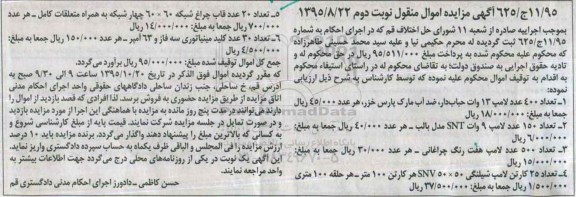 ۶۲۵/ج۱۱/۹۵ آگهی مزایده اموال منقول نوبت دوم ۱۳۹۵/۸/۲۲
بموجب اجراییه صادره از شعبه ۱۱ شورای حل اختلاف قم که در اجرای احکام به شماره
۶۲۵/ج۱۱/۹۵ ثبت گردیده له محرم حکیمی نیا و علیه سید محمد حسینی طاهرزاده
که محکوم علیه محکوم شده به پرداخت مبلغ ۹۵/۵۱۱/۰۰۰ ریال در حق محکوم له و
تادیه حقوق اجرایی به صندوق دولت؛ به تقاضای محکوم له در راستای استیفاء محکوم
به اقدام به توقیف اموال محکوم علیه نموده که توسط کارشناس به شرح ذیل ارزیابی
نموده:
۱- تعداد ۴۰۰ عدد لامپ ۱۳ وات حبابدار، ضد آب مارک پارس خزر، هر عدد ۴۵/۰۰۰ ریال
جمعا به مبلغ: ۱۸/۰۰۰/۰۰۰ ریال
۲- تعداد ۱۵۰ عدد لامپ ۹ وات SNT مدل بالب ـ هر عدد ۴۰/۰۰۰ ریال جمعا به مبلغ:
۶/۰۰۰/۰۰۰ ریال
۳- تعداد ۵۰۰ عدد لامپ هفت رنگ چراغانی ـ هر عدد ۳۰/۰۰۰ ریال جمعا به مبلغ:
۱۵/۰۰۰/۰۰۰ ریال
۴- تعداد ۲۵ کارتن لامپ شیلنگی ۵۰ × SNV ۵۰ هر کارتن ۱۰۰ متر ـ هر حلقه ۱۰۰ متری
۱/۵۰۰/۰۰۰ ریال جمعا به مبلغ: ۳۷/۵۰۰/۰۰۰ ریال
۵- تعداد ۲۰ عدد قاب چراغ شبکه ۶۰ × ۶۰ چهار شبکه به همراه متعلقات کامل ـ هر عدد
۷۰۰/۰۰۰ ریال جمعا به مبلغ: ۱۴/۰۰۰/۰۰۰ ریال
۶- تعداد ۳۰ عدد کلید مینیاتوری سه فاز و ۶۳ آمپر ـ هر عدد ۱۵۰/۰۰۰ ریال جمعا به مبلغ:
۴/۵۰۰/۰۰۰ ریال
جمع کل اموال توقیف شده به مبلغ: ۹۵/۰۰۰/۰۰۰ ریال برآورد می گردد.
که مقرر گردیده اموال فوق الذکر در تاریخ ۱۳۹۵/۱۰/۲۰ ساعت ۹ الی ۹/۳۰ صبح به
آدرس قم، خ ساحلی، جنب زندان ساحلی دادگاههای حقوقی واحد اجرای احکام مدنی
اتاق مزایده از طریق مزایده حضوری به فروش برسد. لذا افرادی که قصد بازدید از اموال را
دارند می توانند در مدت پنج روز مانده به مزایده با هماهنگی این اجرا از مورد مزایده بازدید
و در صورت تمایل در جلسه مزایده شرکت نمایند. قیمت پایه از مبلغ کارشناسی شروع و
به کسانی که بالاترین مبلغ را پیشنهاد دهند واگذار می گردد. برنده مزایده باید ۱۰ درصد
ارزش مزایده را فی المجلس و الباقی ظرف یکماه به حساب سپرده دادگستری واریز نماید.
این آگهی یک نوبت در یکی از روزنامه های محلی درج می گردد جهت اطلاعات بیشتر به
واحد مراجعه نمایند.
حسن کاظمی ـ دادورز اجرای احکام مدنی دادگستری قم